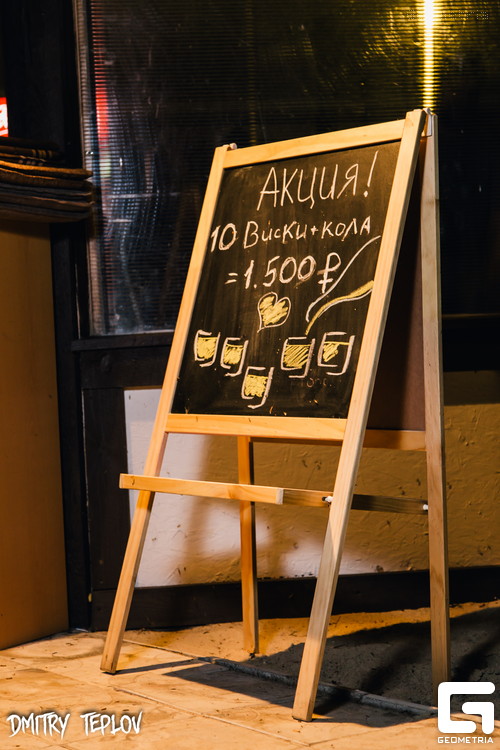 АКЦИЯ!
10 Виски+кола
=1.500₽
DMITRY TEPLOV
GEOMETRIA